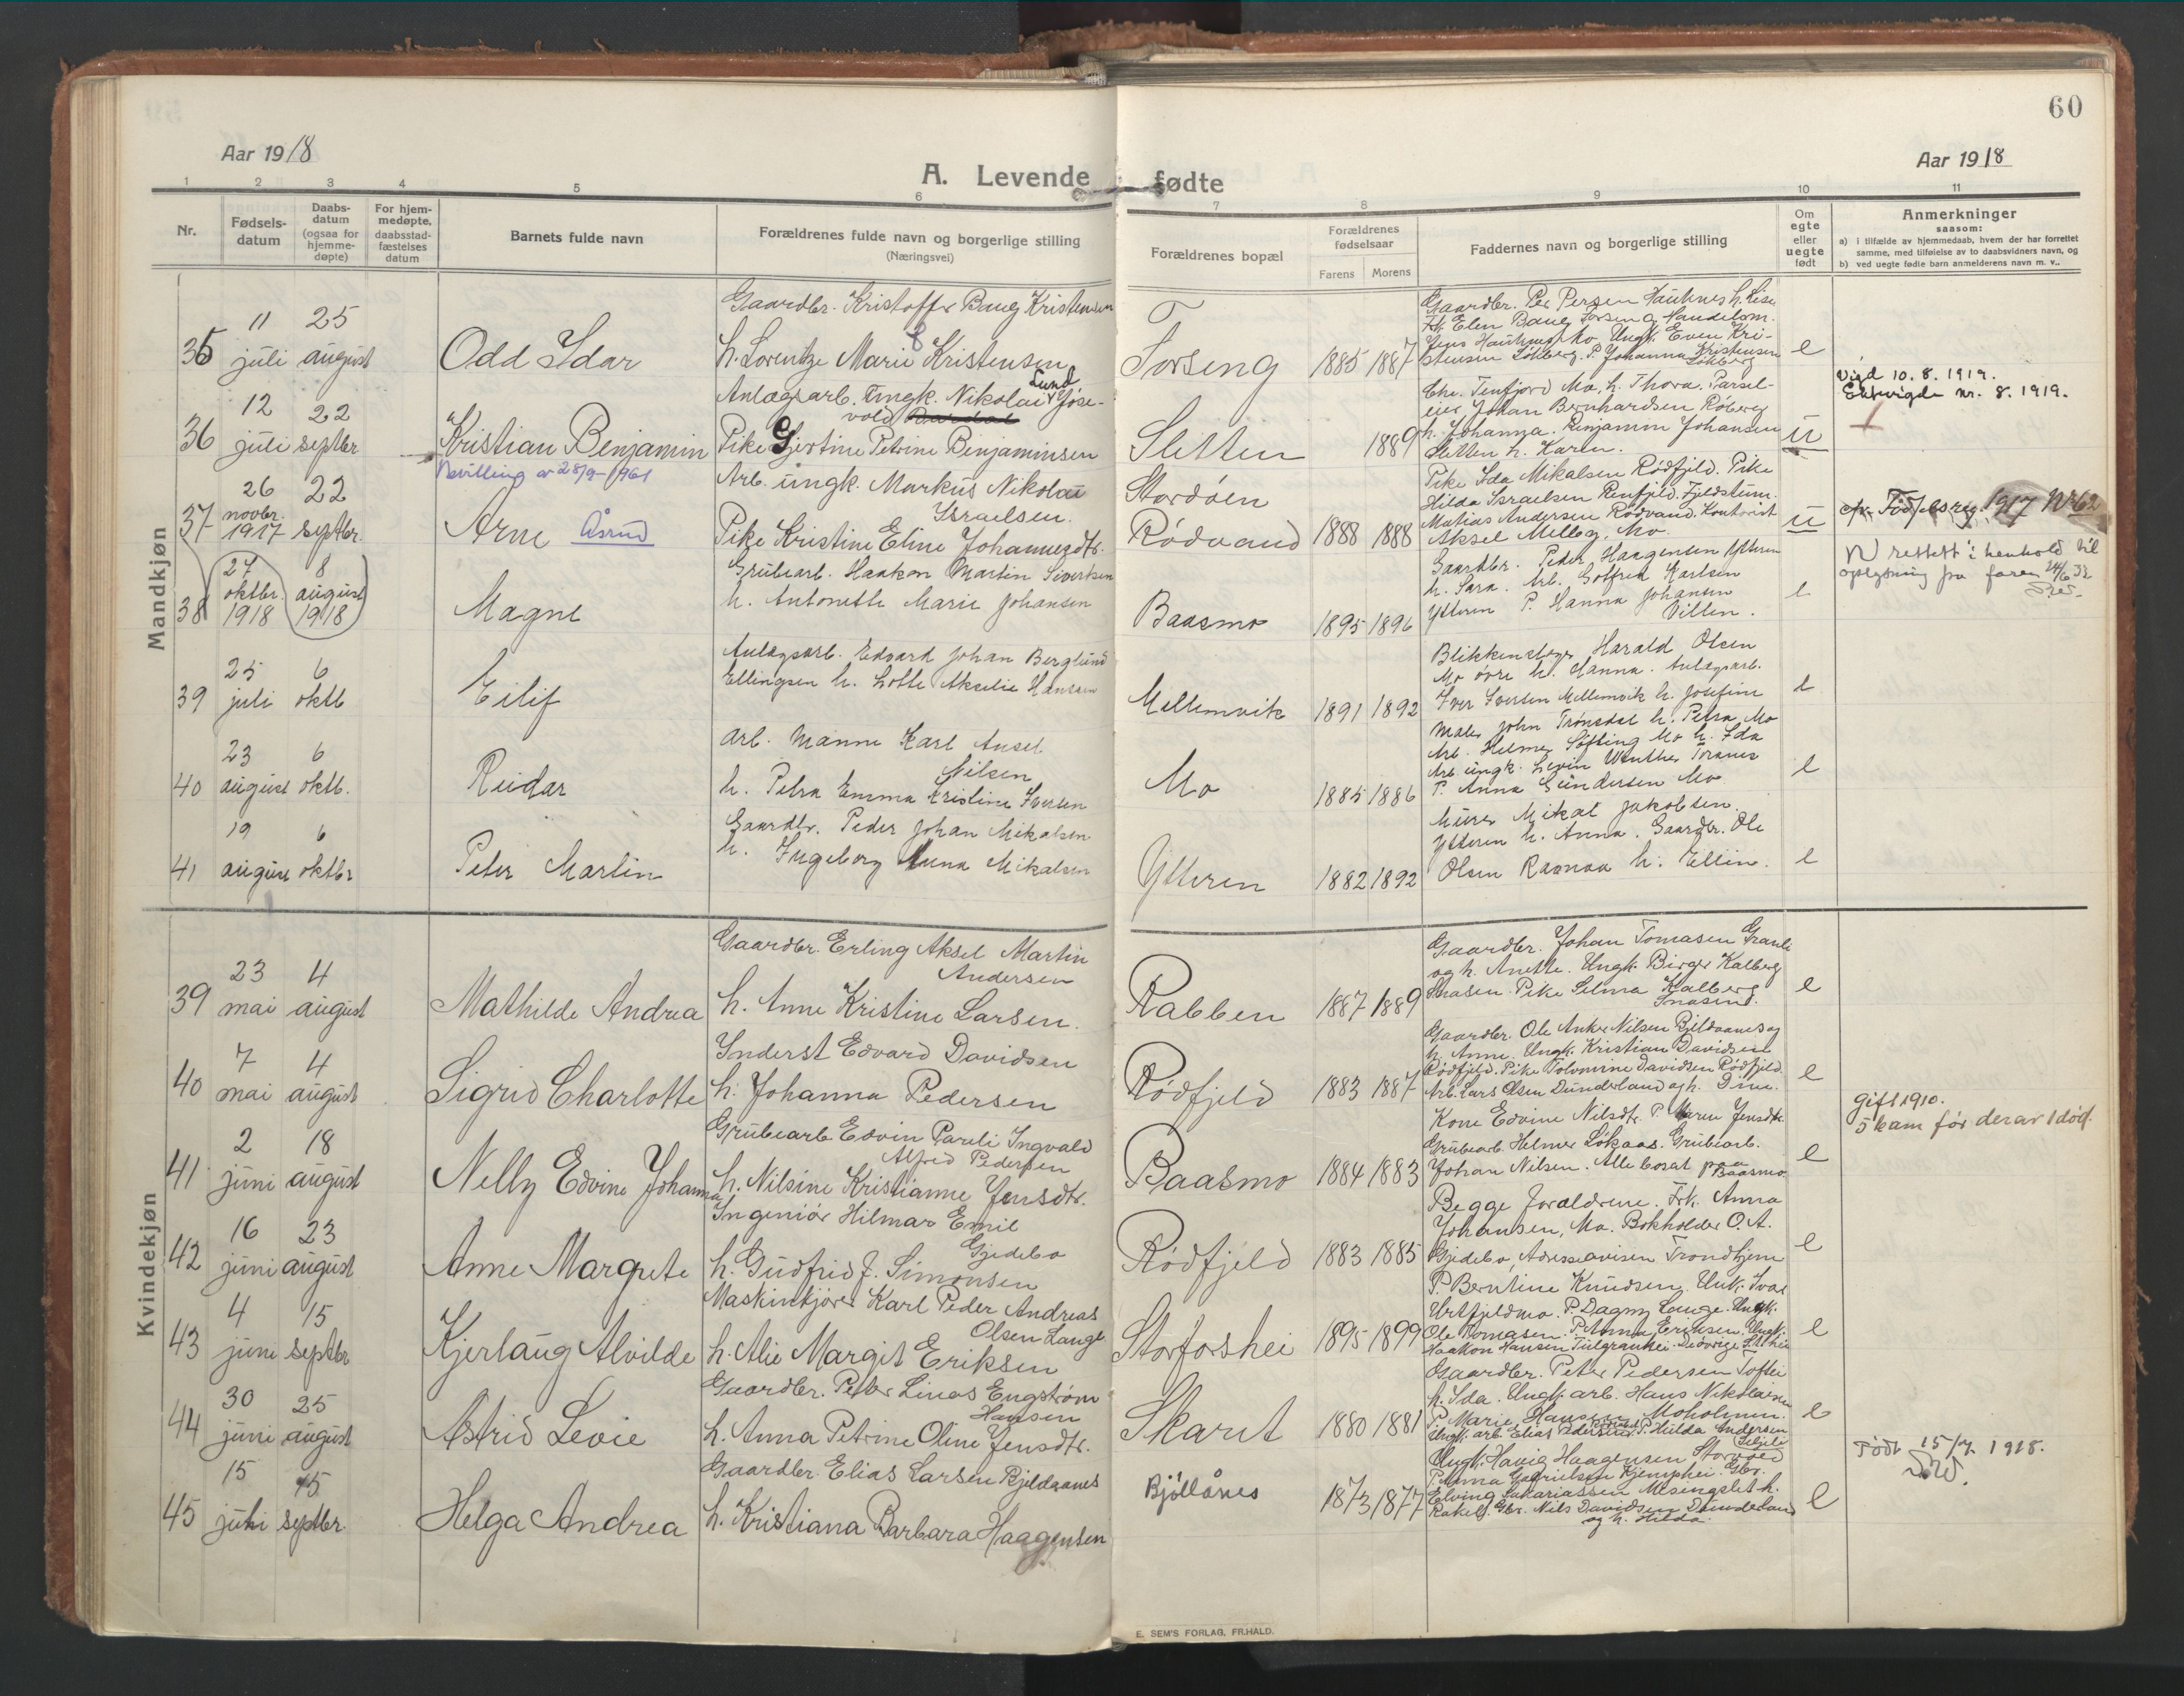 60
Aar 1918
A. Levende fødte
Aar 1918
1 2 3 4 5 6 7 8 9 10 11
Nr.
Fødsels-
datum
Daabs-
datum
(ogsaa for
hjemme-
døpte)
For hjem-
medøpte,
daabsstad-
fæstelses
datum
Barnets fulde navn
Forældrenes fulde navn og borgerlige stilling
(Næringsvei)
Forældrenes bopæl
Forældrenes
fødselsaar
Farens Morens
Faddernes navn og borgerlige stilling
Om
egte
eller
uegte
født
Anmerkninger
saasom:
a) i tilfælde av hjemmedaab, hvem der har forrettet
samme, med tilføielse av to daabsvidners navn, og
b) ved uegte fødte barn anmelderens navn m. v..
Mandkjøn
35
11 juli
25 august
Odd Idar
Gaardbr. Kristoffer Baug Kristensen
h. Lorentze Marie Kristensen
Forseng
1885 1887
Gaardbr. Per Persen Hauknes h. Lise
Frk. Elen Baug Forseng Handelsm.
Jens Hauknes Mo Ungk. Even Kri-
stensen Løkberg. P. Johanna Kristensen
Løkberg
e
36
12 juli
22 septbr
Kristian Benjamin
Tvilling av 28/9-1961
Anlægsarb. Ungk. Nikolai Lund Jose-
vold
Pike Gjertine Petrine Benjaminsen
Sletten
1889
Chr. Tenfjord Mo, h. Thora. Parsel-
eier Johan Bernhardsen Røberg
h. Johanna. Benjamin Johansen
Sletten h. Karen.
u
Vigd 10.8.1919.
Ektevigde nr. 8. 1919.
37
26 novbr. 1917
22 septbr.
Arne Åsrud
Arb. ungk. Markus Nikolai
Israelsen.
Pike Kristine Eline Johannesdtr.
Stordøen
Rødvand
1888 1888
Pike Ida Mikalsen Rødfjeld. Pike
Hilda Israelsen Renfjeld. Fjeldstum.
Mathias Andersen Rødvand. Kontorist
Aksel Melby, Mo.
u
cfr. Fødselsreg. 1917 Nr 62
38
27 oktbr. 1918
8 august 1918
Magne
Grubearb. Haakon Martin Sivertsen
h. Antonette Marie Johansen
Baasmo
1895 1896
Gaardbr. Peder Haagensen Ytteren
h. Sara. Arb. Gotfred Karlsen
Ytteren P. Hanna Johansen
Villen.
e
rettet i henhold til
oplysning fra faren 24/6 32
39
25 juli
6 oktb
Eilif
Anlægsarb. Edvard Johan Berglund
Ellingsen h. Lotte Akselie Hansen
Mellemvik
1891 1892
Blikkenslager Harald Olsen
Mo øvre h. Hanna. Anlægsarb.
Iver Iversen Mellemvik h. Josefine
Maler John Trønsdal h. Petra Mo
e
40
23 august
6 oktb.
Reidar
Arb. Manne Karl Ansel
Nilsen
h. Petra Emma Kristine Iversen
Mo
1885 1886
Arb. Helmer Søfting Mo h. Ida
Arb. ungk. Levin Winther Toranes
P. Anna Gundersen Mo
e
41
19 august
6 oktbr
Peter Martin
Gaardbr. Peder Johan Mikalsen
h. Ingeborg Anna Mikalsen
Ytteren
1882 1892
Murer Mikal Jakobsen
Ytteren h. Anna. Gaardbr. Ole
Olsen Raanaa h. Ellin.
e
Kvindekjøn
39
23 mai
4 august
Mathilde Andrea
Gaardbr. Erling Aksel Martin
Andersen
h. Anne Kristine Larsen.
Rabben
1887 1889
Gaardbr. Johan Tomasen Granli
og h. Anette. Ungk. Birger Kalberg
Snasen. Pike Selma Kalberg
Snasen.
e
40
7 mai
4 august
Sigrid Charlotte
Inderst Edvard Davidsen
h. Johanna Pedersen
Rødfjeld
1883 1887
Gaardbr. Ole Anker Nilsen Bjeldaanes og
h. Anne. Ungk. Kristian Davidsen
Rødfjeld. Pike Tolvmine Davidsen Rødfjeld.
Arb. Lars Olsen Dunderland og h. Dine.
e
41
2 juni
18 august
Nelly Edvine Johanna
Grubearb Edvin Pareli Ingvald
Alfred Pedersen
h. Nilsine Kristianne Jensdtr.
Baasmo
1884 1883
Kone Edvine Nilsdtr. P. Maren Jensdtr.
Grubearb. Helmer Løkaas. Grubearb.
Johan Nilsen. Alle bosat paa Baasmo.
e
Gift 1910.
5 barn før derav 1 død.
42
16 juni
23 august
Anne Margrete
Ingeniør Hilmar Emil
Gjedebo
h. Gudfrid J. Simonsen
Rødfjeld
1883 1885
Begge forældrene. Frk. Anna
Johansen, Mo. Bokholder O. A.
Gjedebo, Adresseavisen Trondhjem
e
43
4 juni
15 septbr
Kjerlaug Alvilde
Maskinkjører Karl Peder Andreas
Olsen Lange
h. Alie Margit Eriksen
Storforshei
1895 1899
P. Berntine Knudsen. Unk. Ivar
Urtfjeldmo. P. Dagny Lange. Ungk.
Ole Tomasen. P. Anna Eriksen. Ungk.
Haakon Hansen
e
44
30 juni
25 august
Astrid Levie
Gaardbr. Peter Linas Engstrøm
Hansen
h. Anna Petrine Oline Jensdtr.
Skarit
1880 1881
Gaardbr. Peter Pedersen Toftli
h. Ida. Ungk. arb. Hans Nikolaisen
P. Marie Hansen Moholmen.
Ungk. arb. Elias Pedersen. P. Hilda Andersen
e
45
15 juni
15 septbr.
Helga Andrea
Gaardbr. Elias Larsen Bjeldaanes
h. Kristiana Barbara Haagensen
Bjöllånes
1873 1877
Ungk. Havig Haagensen Storvold
P. Anna Gabrielsen Kjemphei. Gbr.
Elving Sakariassen Messingslet h.
Rakel. Gbr. Nils Davidsen Dunderland
og h. Hilda.
e
Født 15/7. 1918.
E. SEM'S FORLAG, FR.HALD.